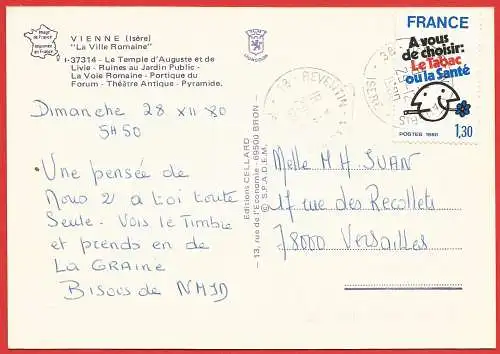 Image
de France
Imprimée
en France
VIENNE (Isère)
"La Ville Romaine"
I-37314 - Le Temple d'Auguste et de
Livie - Ruines au Jardin Public -
La Voie Romaine - Portique du
Forum - Théâtre Antique - Pyramide.
Dimanche 28 XII 80
5H50
Une pensée de
Nous 2 a toi toute
Seule - Vois le Timbre
et prends en de
LA GRAINE
Bisous de NMJD
Editions CELLARD
- 13, rue de l'Economie - 69500 BRON -
© S.P.A.D.E.M.
38 REVENTIN
38
ISERE
FRANCE
A vous
de choisir:
Le Tabac
ou la Santé
POSTES 1980
1,30
Melle M H JUAN
17 rue des Recollets
78000 Versailles